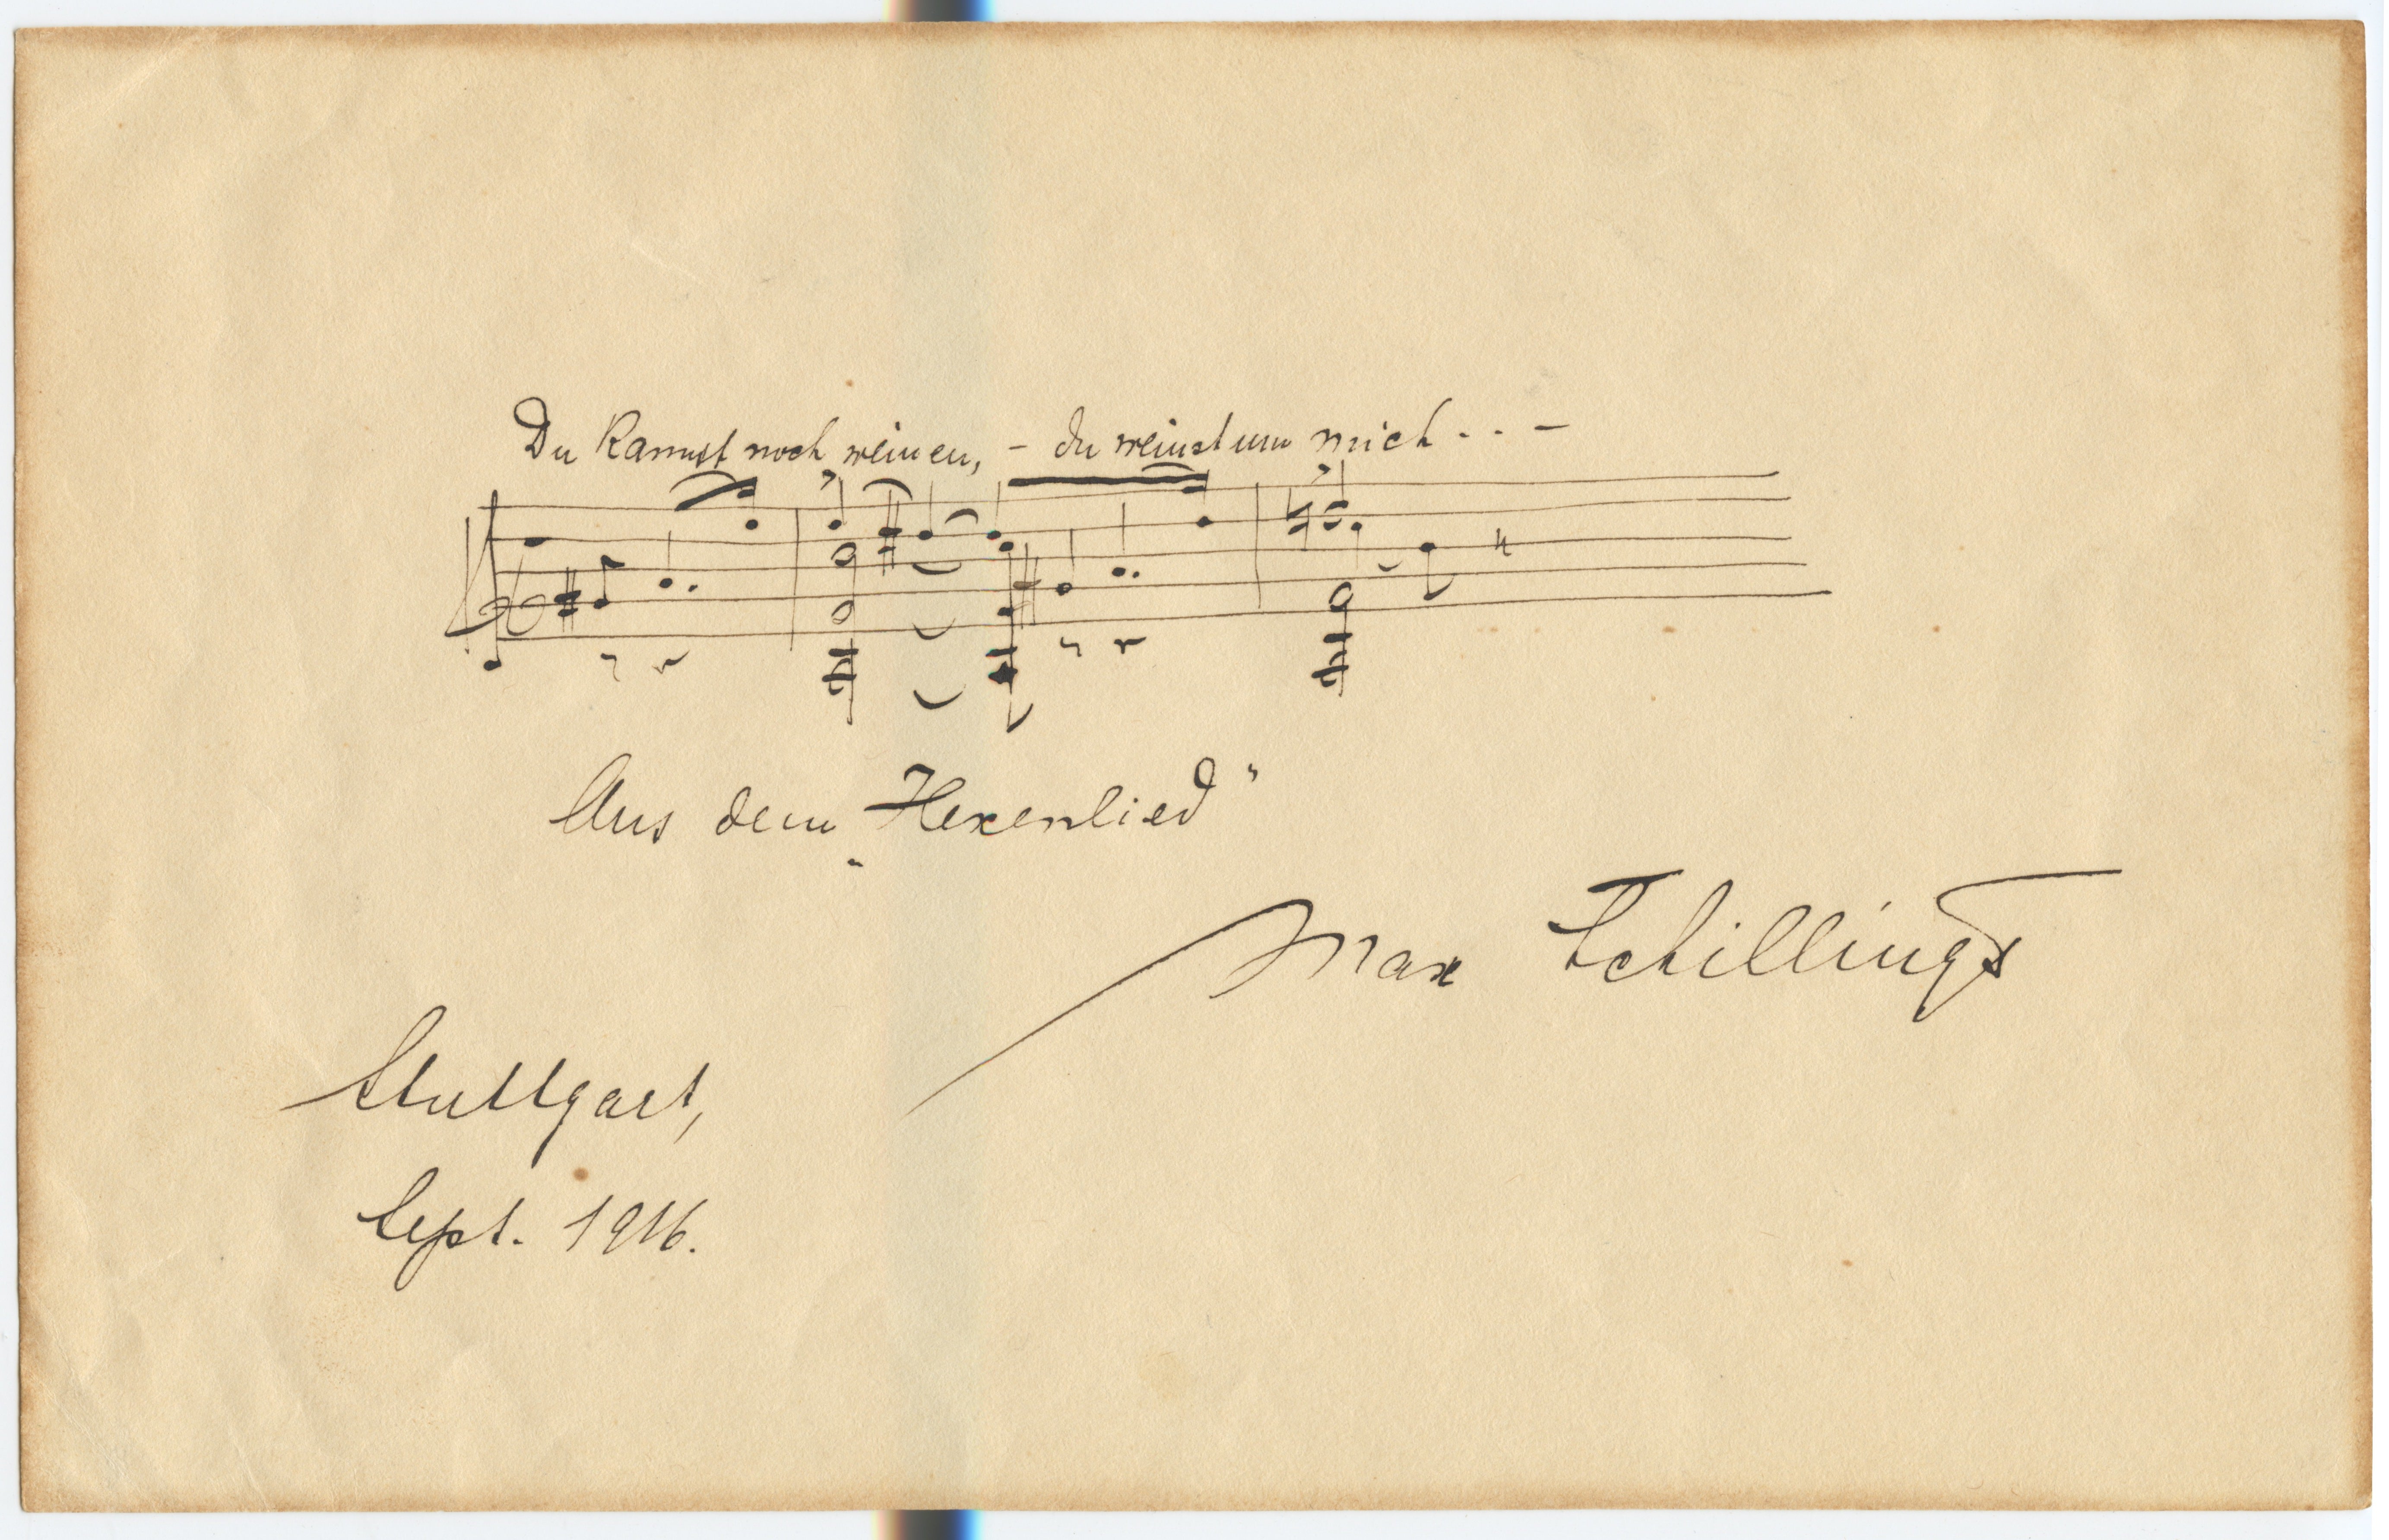 Du kannst noch weinen, – du weinst um mich . . . –
Aus dem „Hexenlied”
Max Schillings
Stuttgart,
Sept. 1916.